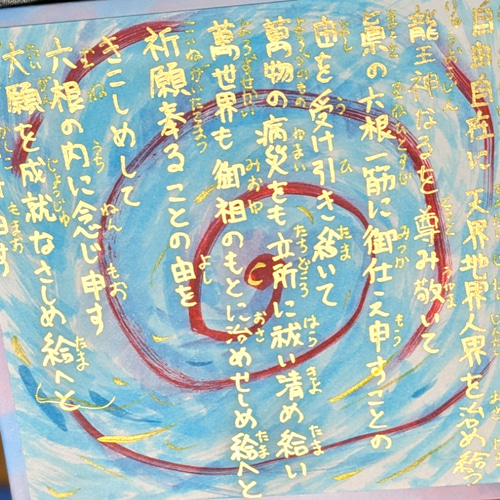 自由自在に 天界地界人界を治め給う
龍王神なるを尊み敬いて
眞の六根一筋に御仕え申すことの
由を受け引き給いて
萬物の病災をも立所に祓い清め給い
萬世界も御祖のもとに治めせしめ給へと
祈願奉ることの由を
きこしめして
六根の内に念じ申す
大願を成就なさしめ給へと